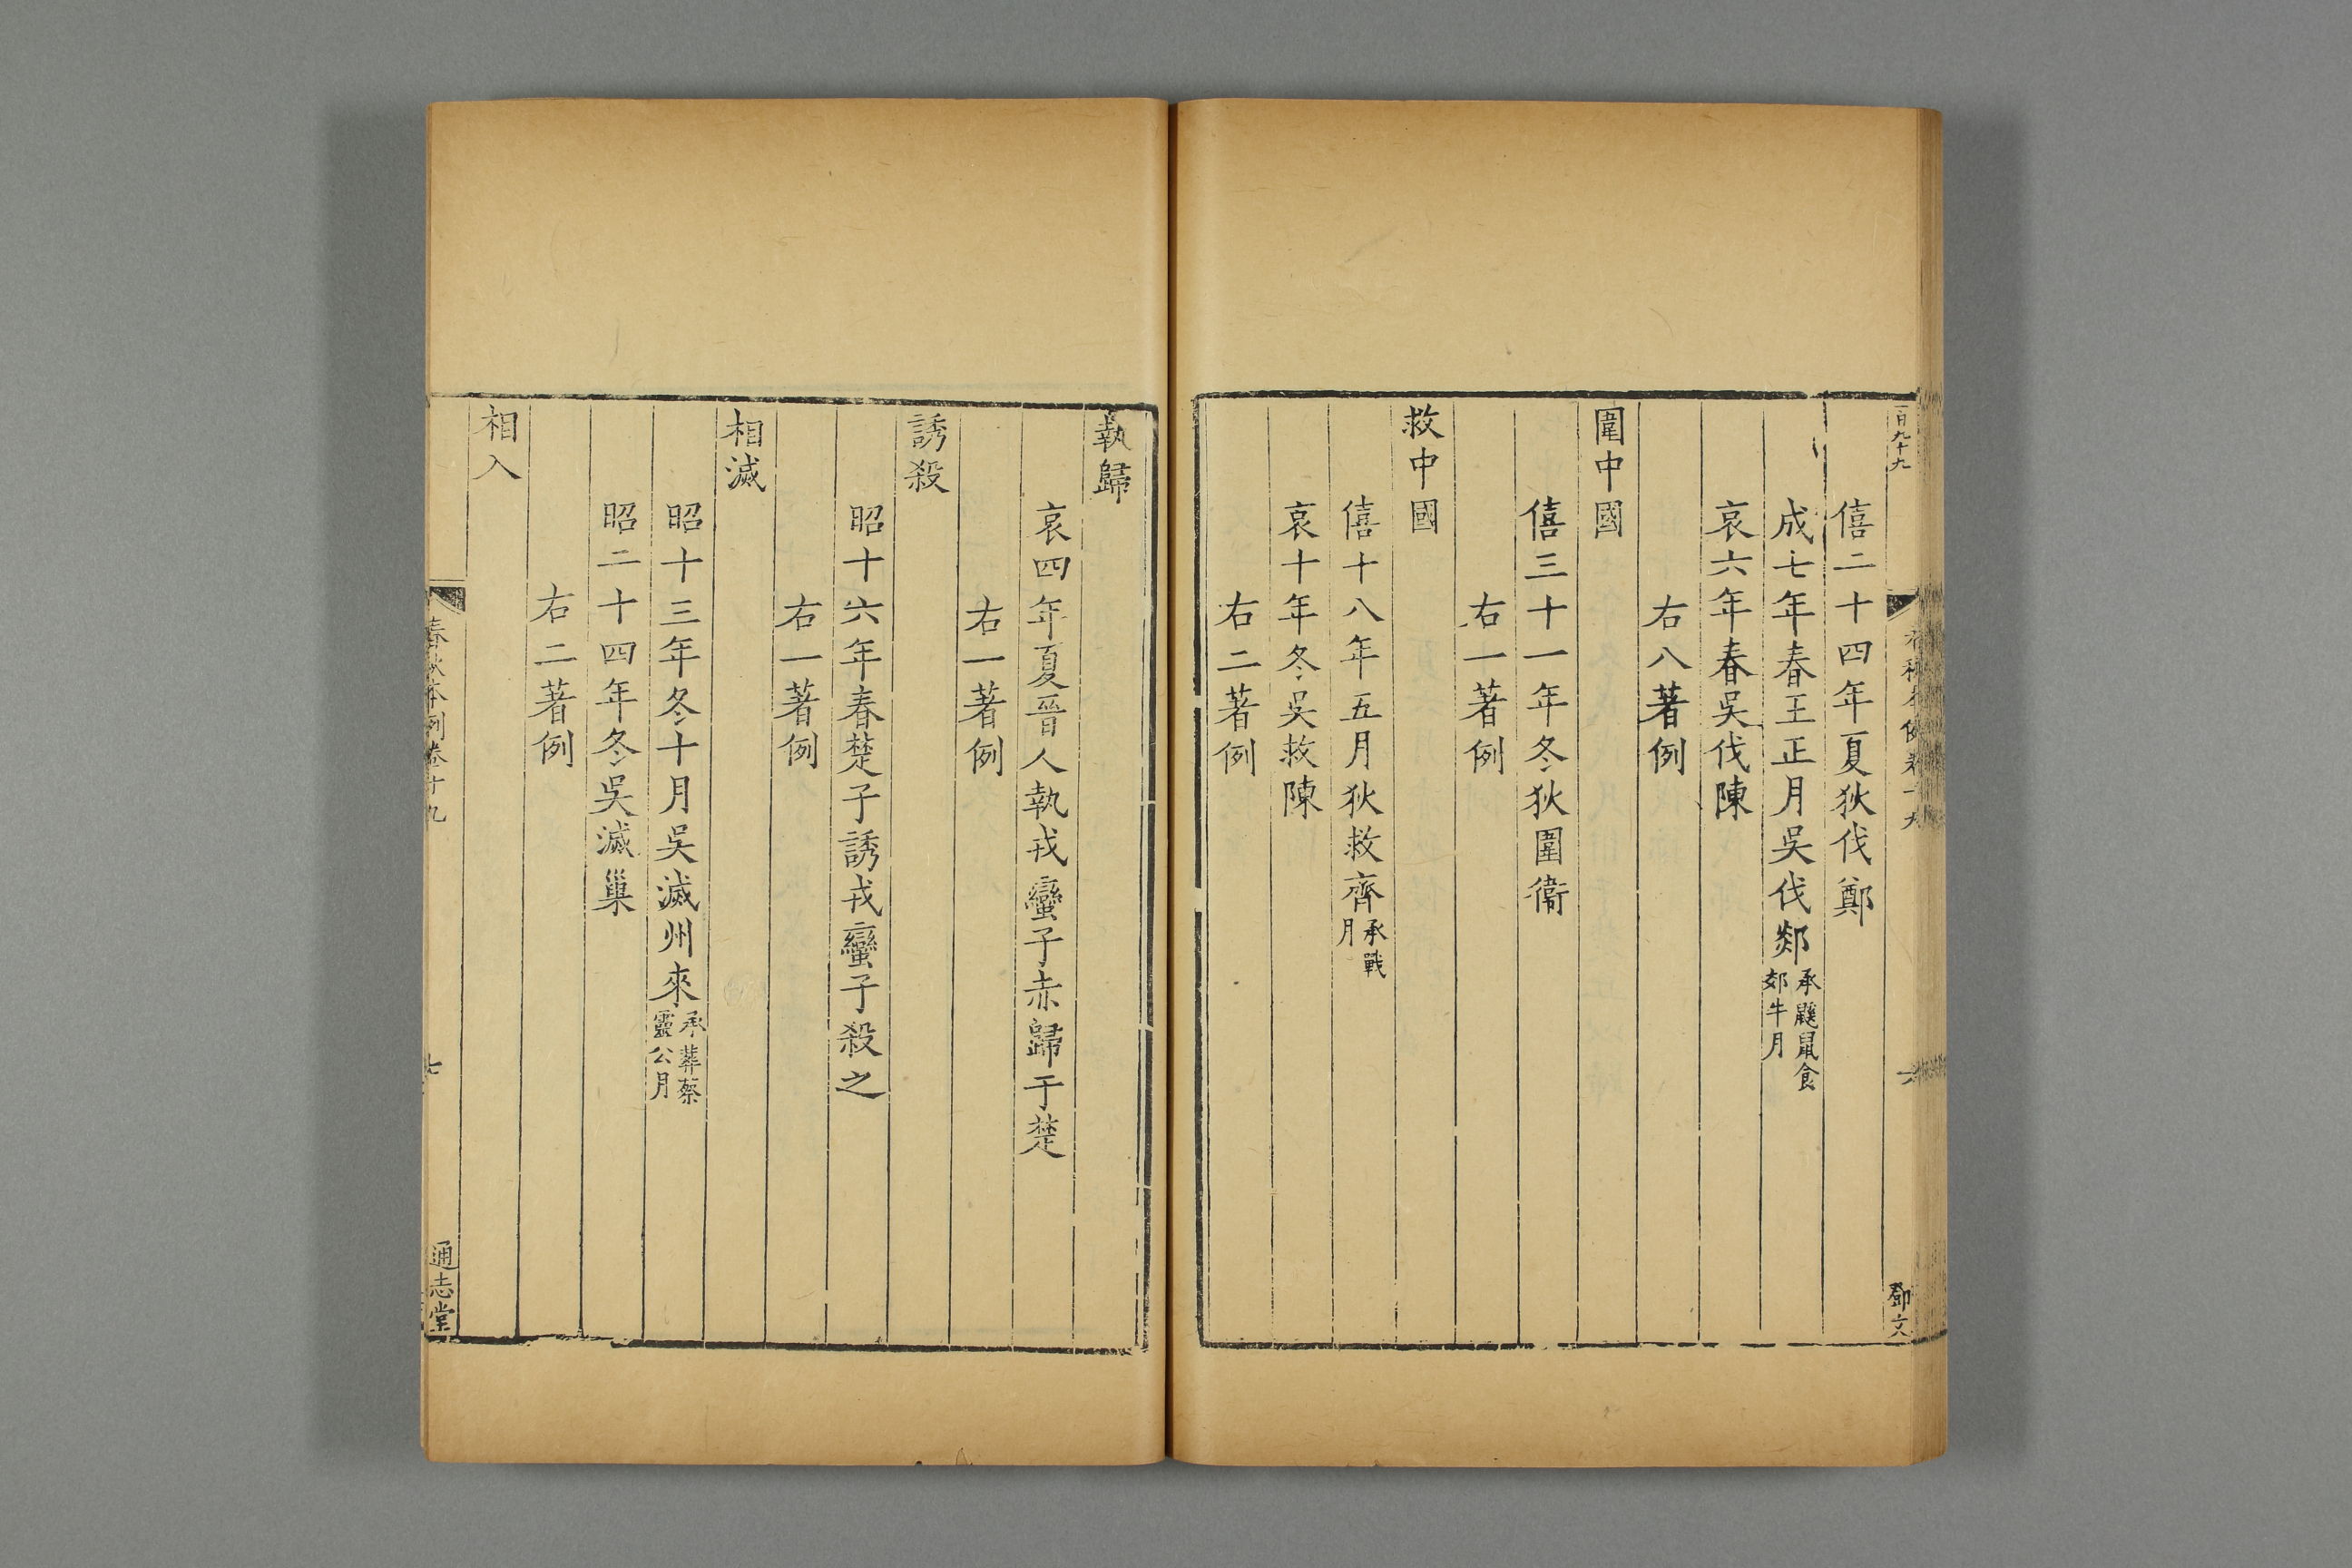 百九十九
鄧文
僖二十四年夏狄伐鄭
成七年春王正月吳伐郯承鼷鼠食郊牛月
哀六年春吳伐陳
右八著例
圍中國
僖三十一年冬狄圍衞
右一著例
救中國
僖十八年五月狄救齊承戰月
哀十年冬吳救陳
右二著例
執歸
哀四年夏晉人執戎蠻子赤歸于楚
右一著例
誘殺
昭十六年春楚子誘戎蠻子殺之
右一著例
相滅
昭十三年冬十月吳滅州來承葬蔡靈公月
昭二十四年冬吳滅巢
右二著例
相入
春秋本例卷十九
七
通志堂